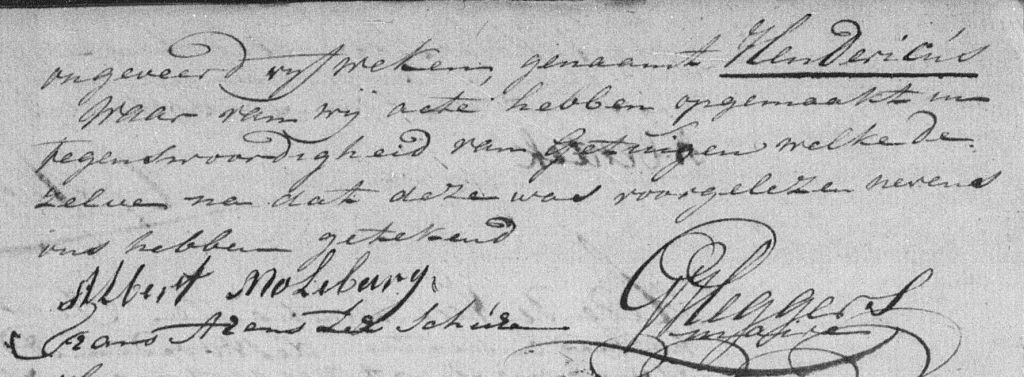 ongeveerd vyf weken, genaamt Hendericús
Waar van wij acte hebben opgemaakt in
tegenswoordigheid van Getuigen welke de
zelve na dat deze was voorgelezen nevens
ons hebben getekend
Albert Molsburg.
Frans
Heggers
maire